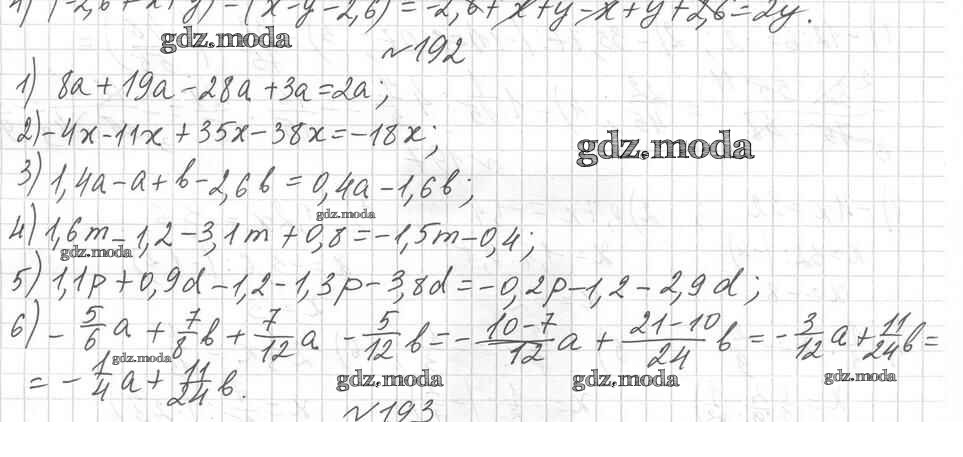 4) (-2,6 + x + y) - (x - y - 2,6) = -2,6 + x + y - x + y + 2,6 = 2y.
gdz.moda
№192
1) 8a + 19a - 28a + 3a = 2a;
2) -4x - 11x + 35x - 38x = -18x;
gdz.moda
3) 1,4a - a + b - 2,6b = 0,4a - 1,6b;
gdz.moda
4) 1,6m - 1,2 - 3,1m + 0,8 = -1,5m - 0,4;
gdz.moda
5) 1,1p + 0,9d - 1,2 - 1,3p - 3,8d = -0,2p - 1,2 - 2,9d;
6) -5/6 a + 7/8 b + 7/12 a - 5/12 b = -(10-7)/12 a + (21-10)/24 b = -3/12 a + 11/24 b =
gdz.moda
= -1/4 a + 11/24 b.
gdz.moda
gdz.moda
gdz.moda
№193